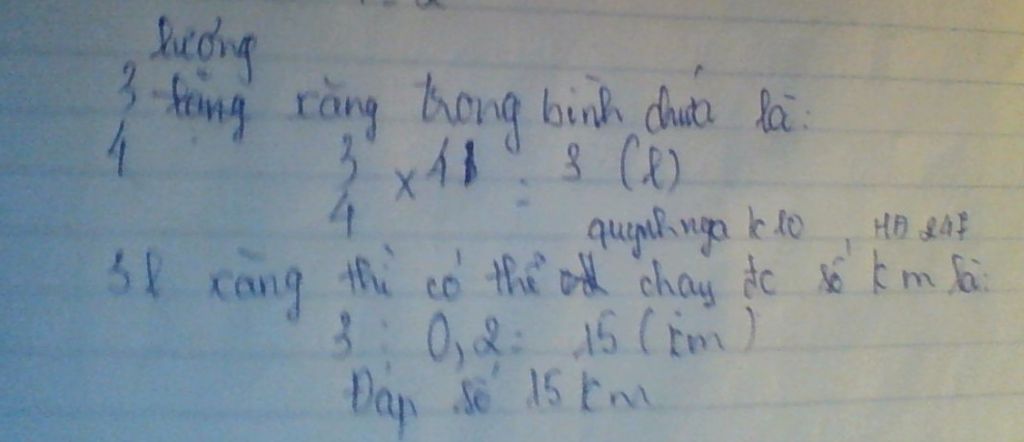 lượng
3 xăng trong bình chứa là:
4
3 x 4 = 3 (l)
4
quỳnh nga k10, HA 247
3l xăng thì có thể chạy đc số km là:
3 : 0,2 = 15 (km)
Đáp số 15 km